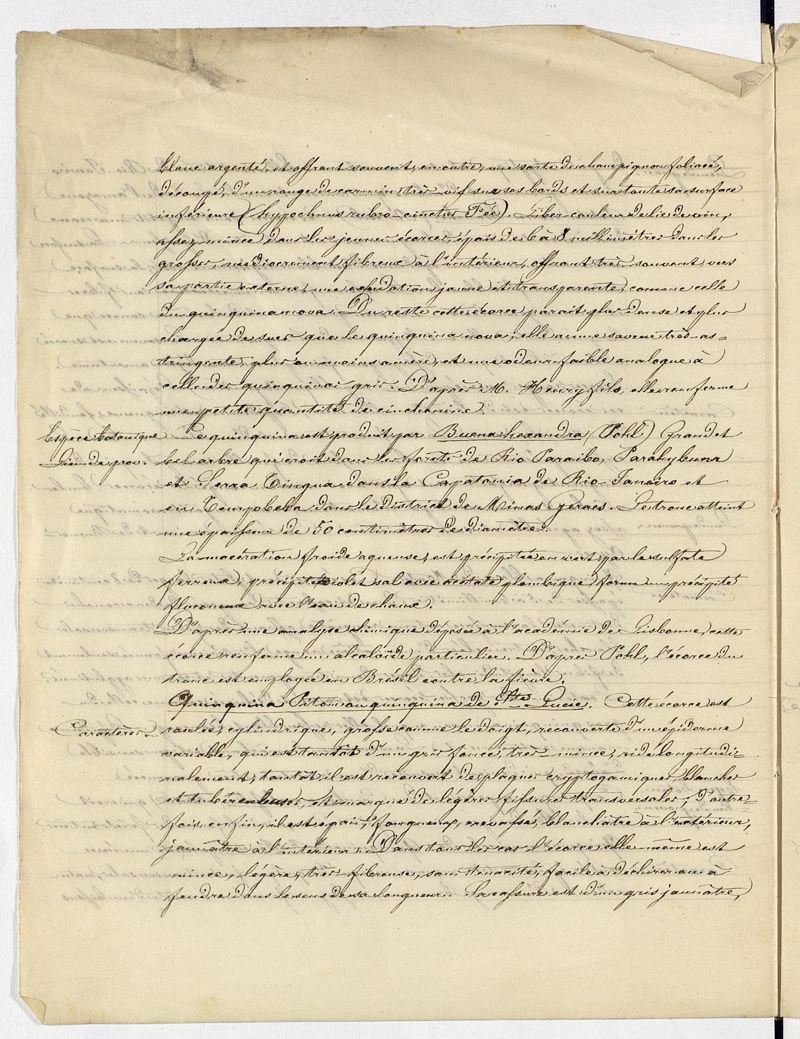 blanc argenté, et offrant souvent, en outre, une sorte de champignon foliacé,
découpé, d'un rouge de carmin très-vif sur ses bords et sur toute sa surface
inférieure (hypochnus rubro-cinctus Fée). Liber couleur de lie de vin,
assez mince, dans les jeunes écorces, épais de 6 à 8 millimètres dans les
grosses, médiocrement fibreux à l'intérieur, offrant très souvent, vers
sa partie externe, une exsudation jaune et transparente, comme celle
du quinquina nova. Du reste cette écorce parait plus dense et plus
chargée de sucs que le quinquina nova; elle a une saveur très-as-
tringente, plus ou moins amère, et une odeur faible analogue à
celle des quinquinas gris. D'après M. Henry fils, elle renferme
une petite quantité de cinchonine.
Espèce botanique Ce quinquina est produit par Buena hexandra (Pohl) Grand et
lieu de prov. bel arbre qui croit dans les forêts de Rio Paraibo, Parahybuna
et Serra Tingua dans la Capatania de Rio-Janeiro et
en dans le District de Minas Geraës. Le tronc atteint
une épaisseur de 50 centimètres de diamètre.
La macération froide aqueuse, est précipitée en vert par le sulfate
ferreux, précipité violet sal avec acétate plombique, forme un précipité
floconeux avec l'eau de chaux.
D'après une analyse chimique déposée à l'académie de Lisbonne, cette
écorce renferme un alcaloïde particulier. D'après Pohl, l'écorce du
tronc est employée en Brésil contre la fièvre.
Quinquina Piton ou quinquina de Ste Lucie. Cette écorce est
Caractères. roulée, cylindrique, grosse comme le doigt, recouverte d'un épiderme
variable, qui est tantôt d'un gris foncé, très-mince, ridé longitudi-
nalement, tantôt il est recouvert de plaques cryptogamiques blanches
et tubéreuleuses, et marqué de légères fissures transversales; d'autre-
fois enfin, il est épais, fongueux, crevassé, blanchâtre à l'extérieur,
jaunâtre à l'intérieur. Dans tous les cas l'écorce elle-même est
mince, légère, très fibreuse, sans tenacité, facile à déchirer ou à
fendre dans le sens de sa longueur. Sa cassure est d'un gris jaunâtre,